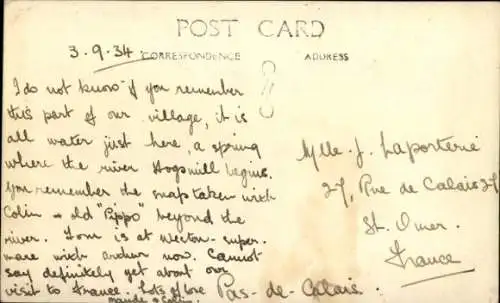 POST CARD
3.9.34 CORRESPONDENCE ADDRESS
I do not know if you remember
this part of our village, it is
all water just here, a spring
where the river Hogsmill begins.
You remember the snap taken with
Colin & old "Pippo" beyond the
river. Tom is at Weston-super-
mare with now. Cannot
say definitely yet about our
visit to France. Lots of love
maude & Colin.
Mlle. J. Laporterie
27, Rue de Calais 27
St. Omer.
France
Pas-de-Calais.